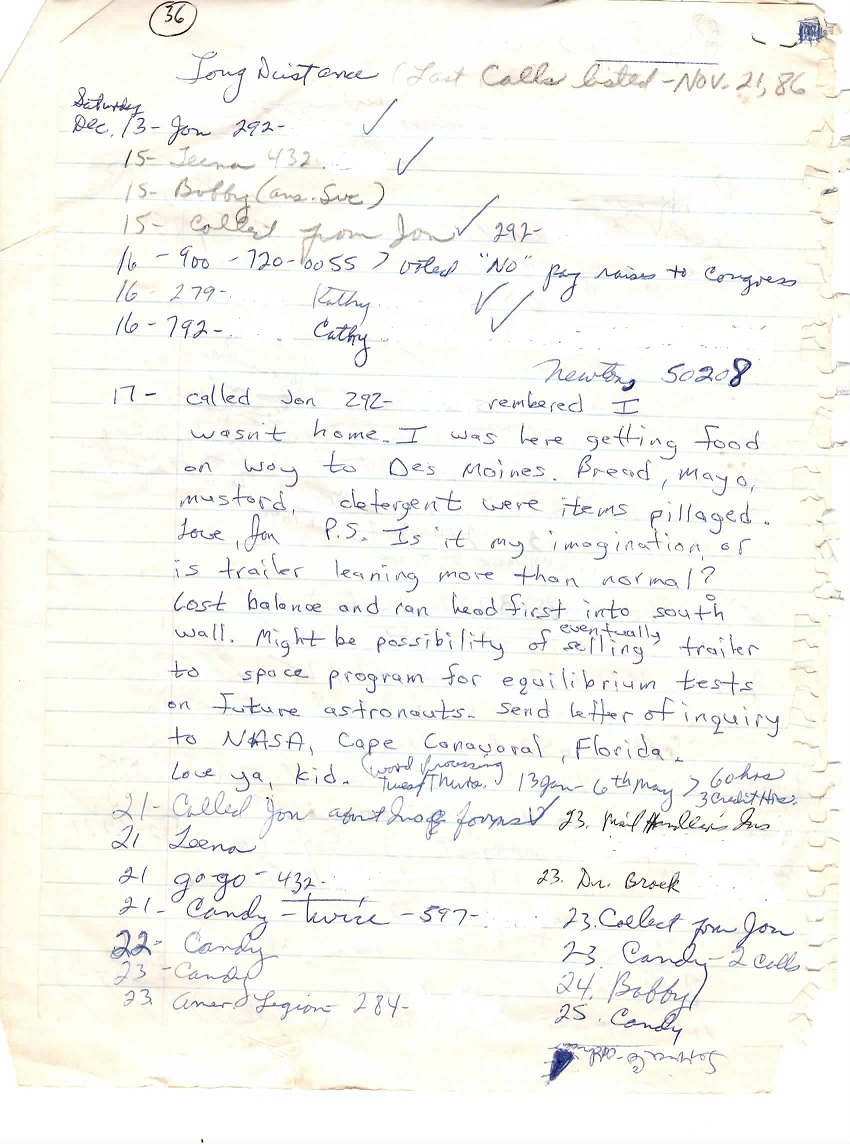 36
Long Distance (Last Calls listed - NOV. 21, 86
Saturday
Dec. 13 - Jon 292-
15 - Teena 432
15 - Bobby (ans. Svc)
15 - Collect from Jon 292-
16 - 900 - 720-0055 > voted "NO" pay raises to Congress
16 - 279- Kathy
16 - 792- Cathy
Newton, 50208
17 - called Jon 292- rembered I
wasn't home. I was here getting food
on way to Des Moines. Bread, mayo,
mustard, detergent were items pillaged.
Love, Jon P.S. Is it my imagination, or
is trailer leaning more than normal?
Lost balance and ran head first into south
wall. Might be possibility of eventually selling trailer
to space program for equilibrium tests
on future astronauts. Send letter of inquiry
to NASA, Cape Canavaral, Florida.
Love ya, kid. (word processing
Tues/Thurs. 13 Jan - 6th May > 60 hrs
3 Credit Hrs.
21 - Called Jon about forms
23. Mail Handler's Ins
21 Leena
21 go-go - 432-
23. Dr. Brock
21 - Candy - twice - 597-
23. Collect from Jon
22 - Candy
23 Candy - 2 calls
23 - Candy
24. Bobby
23 Amer Legion 284-
25. Candy